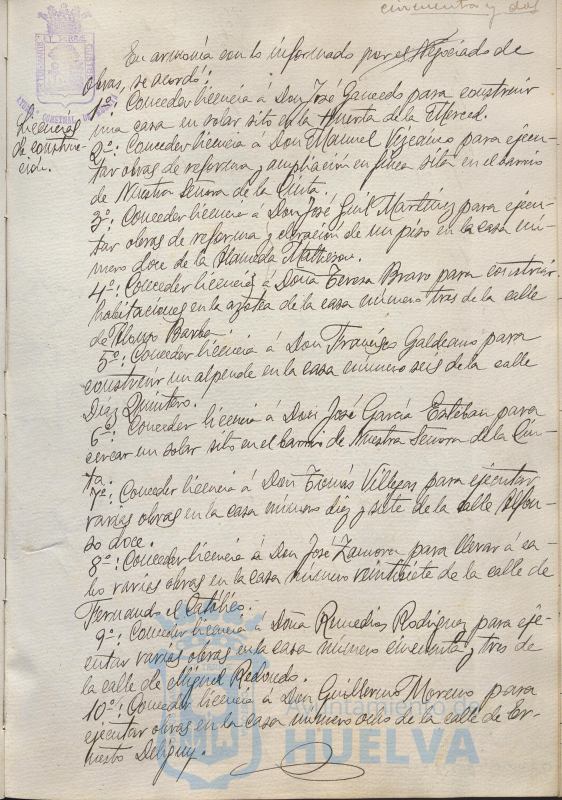 cincuenta y dos
En armonía con lo informado por el Negociado de
obras, se acordó:
Licencias
de construc-
ción.
1º: Conceder licencia á Don José Gancedo para construir
una casa en solar sito en la Huerta de la Merced.
2º: Conceder licencia á Don Manuel Vizcaino para ejecu-
tar obras de reforma y ampliación en finca sita en el barrio
de Nuestra Señora de la Cinta.
3º: Conceder licencia á Don José Guil Martínez para ejecu-
tar obras de reforma y elevación de un piso en la casa nú-
mero doce de la Alameda Matheson.
4º: Conceder licencia á Doña Teresa Bravo para construir
habitaciones en la azotea de la casa número tres de la calle
de Alonso Barba.
5º: Conceder licencia á Don Francisco Galdeano para
construir un alpende en la casa número seis de la calle
Díez Quintero.
6º: Conceder licencia á Don José García Esteban para
cercar un solar sito en el barrio de Nuestra Señora de la Cin-
ta.
7º: Conceder licencia á Don Tomás Villegas para ejecutar
varias obras en la casa número diez y siete de la calle Alfon-
so doce.
8º: Conceder licencia á Don José Zamora para llevar á ca-
bo varias obras en la casa número veintisiete de la calle de
Fernando el Católico.
9º: Conceder licencia á Doña Remedios Rodríguez para eje-
cutar varias obras en la casa número cincuenta y tres de
la calle de Miguel Redondo.
10º: Conceder licencia á Don Guillermo Moreno para
ejecutar obras en la casa número ocho de la calle de Er-
nesto Deligny.
Ayuntamiento de
HUELVA